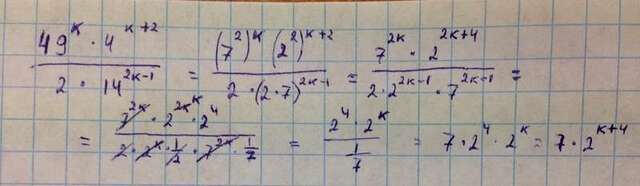 \frac{49^{k} \cdot 4^{k+2}}{2 \cdot 14^{2k-1}} = \frac{(7^{2})^{k} (2^{2})^{k+2}}{2 \cdot (2 \cdot 7)^{2k-1}} = \frac{7^{2k} \cdot 2^{2k+4}}{2 \cdot 2^{2k-1} \cdot 7^{2k-1}} =
= \frac{7^{2k} \cdot 2^{2k} \cdot 2^{4}}{2 \cdot 2^{k} \cdot \frac{1}{2} \cdot 7^{2k} \cdot \frac{1}{7}} = \frac{2^{4} \cdot 2^{k}}{\frac{1}{7}} = 7 \cdot 2^{4} \cdot 2^{k} = 7 \cdot 2^{k+4}